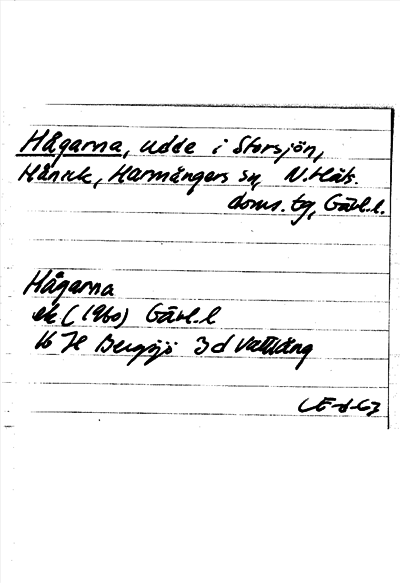 Hågarna, udde i Storsjön,
Hånick, Harmångers sn, N. Häls.
doms. tg, Gävl.l.
Hågarna
ek (1960) Gävl.l
16 H Bergsjö 3d Vattlång